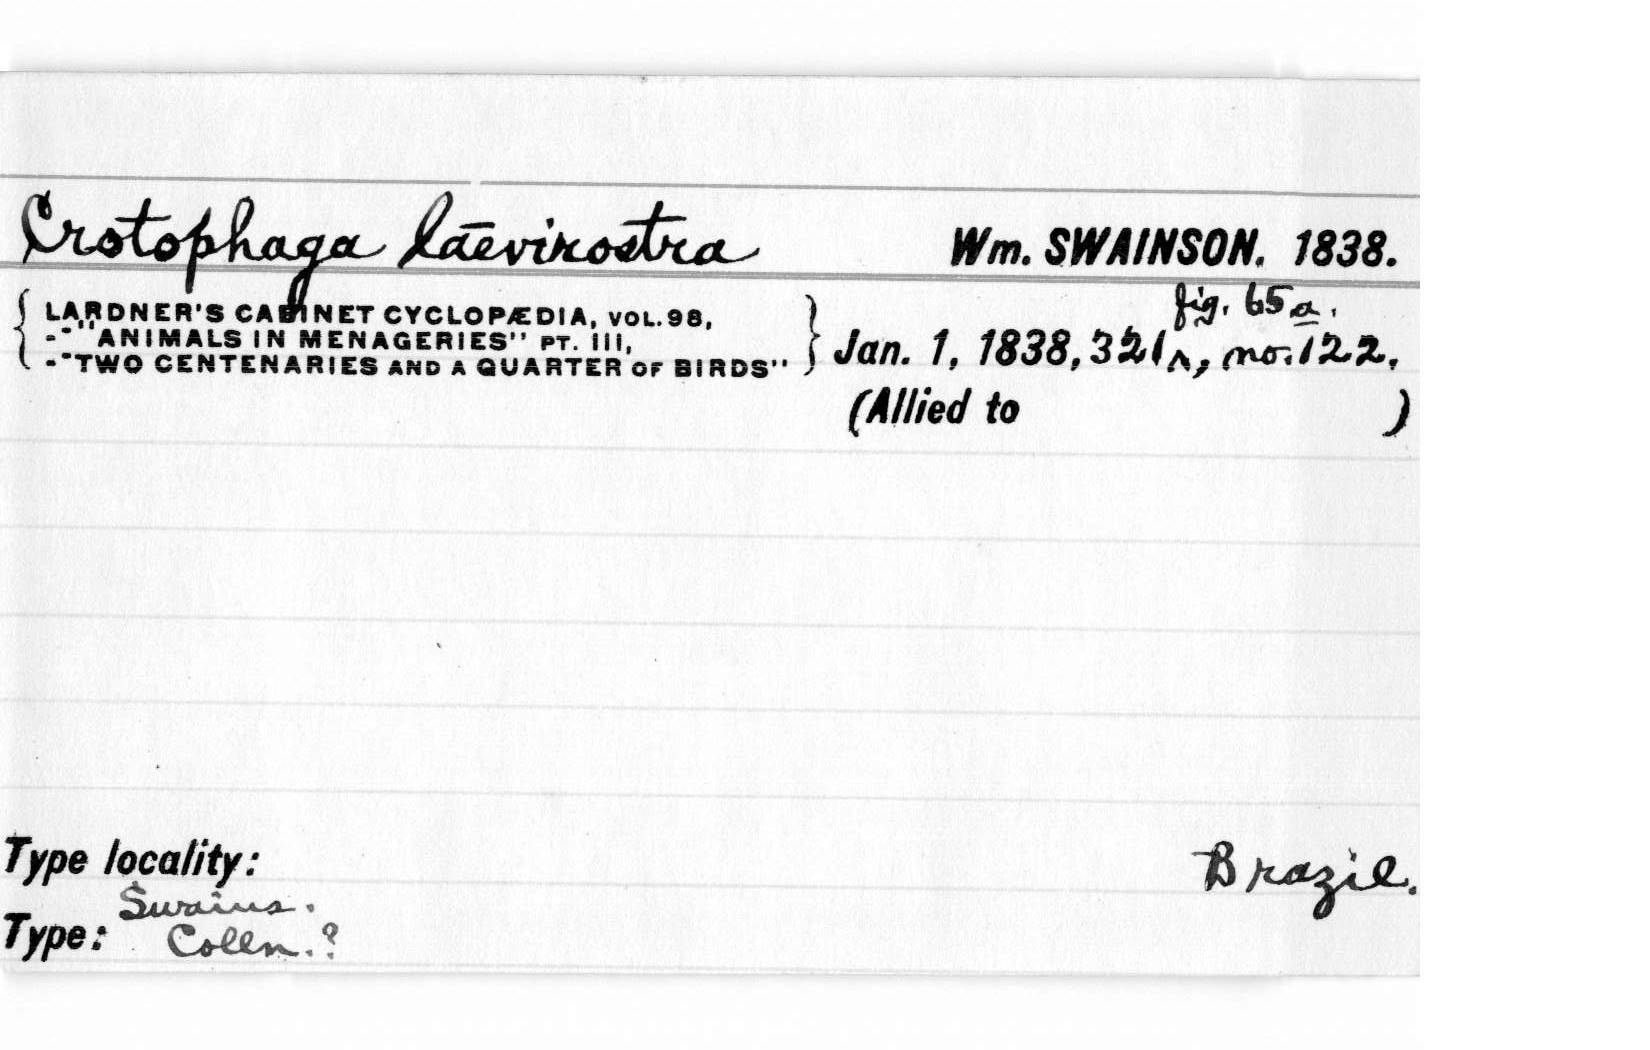 Crotophaga laevirostra Wm. SWAINSON. 1838.
fig. 65a.
LARDNER'S CABINET CYCLOPÆDIA, VOL.98,
-"ANIMALS IN MENAGERIES" PT. III,
-"TWO CENTENARIES AND A QUARTER OF BIRDS"
Jan. 1, 1838, 321^, no. 122.
(Allied to )
Type locality: Brazil.
Swains.
Type: Colln.?